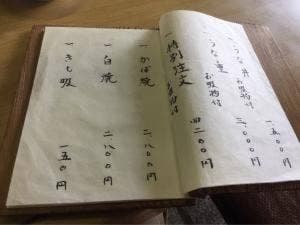 一 うな丼 お吸物付 一、五〇〇
一 うな重 お吸物付 三、〇〇〇円
一 特別注文 四二〇〇円
一 かば焼 二、八〇〇円
一 白焼 二、八〇〇円
一 きも吸 一五〇円